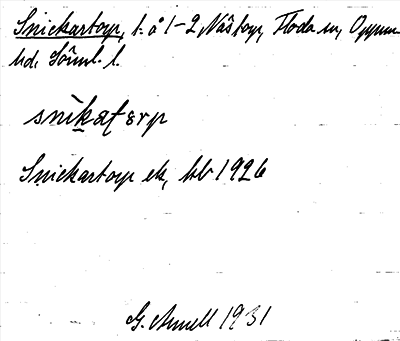 Snickartorp, t. å 1-2, Nåstorp, Floda sn, Oppun.
hd, Söml. l.
snìkaṭɛrp
Snickartorp ek, kb 1926
G. Amell 1931